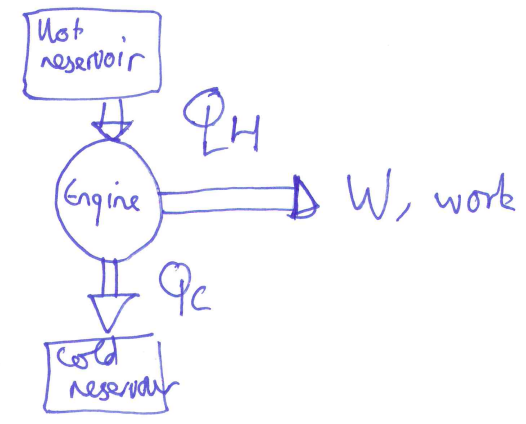 Hot
reservoir
QH
Engine
W, work
Qc
Cold
reservoir